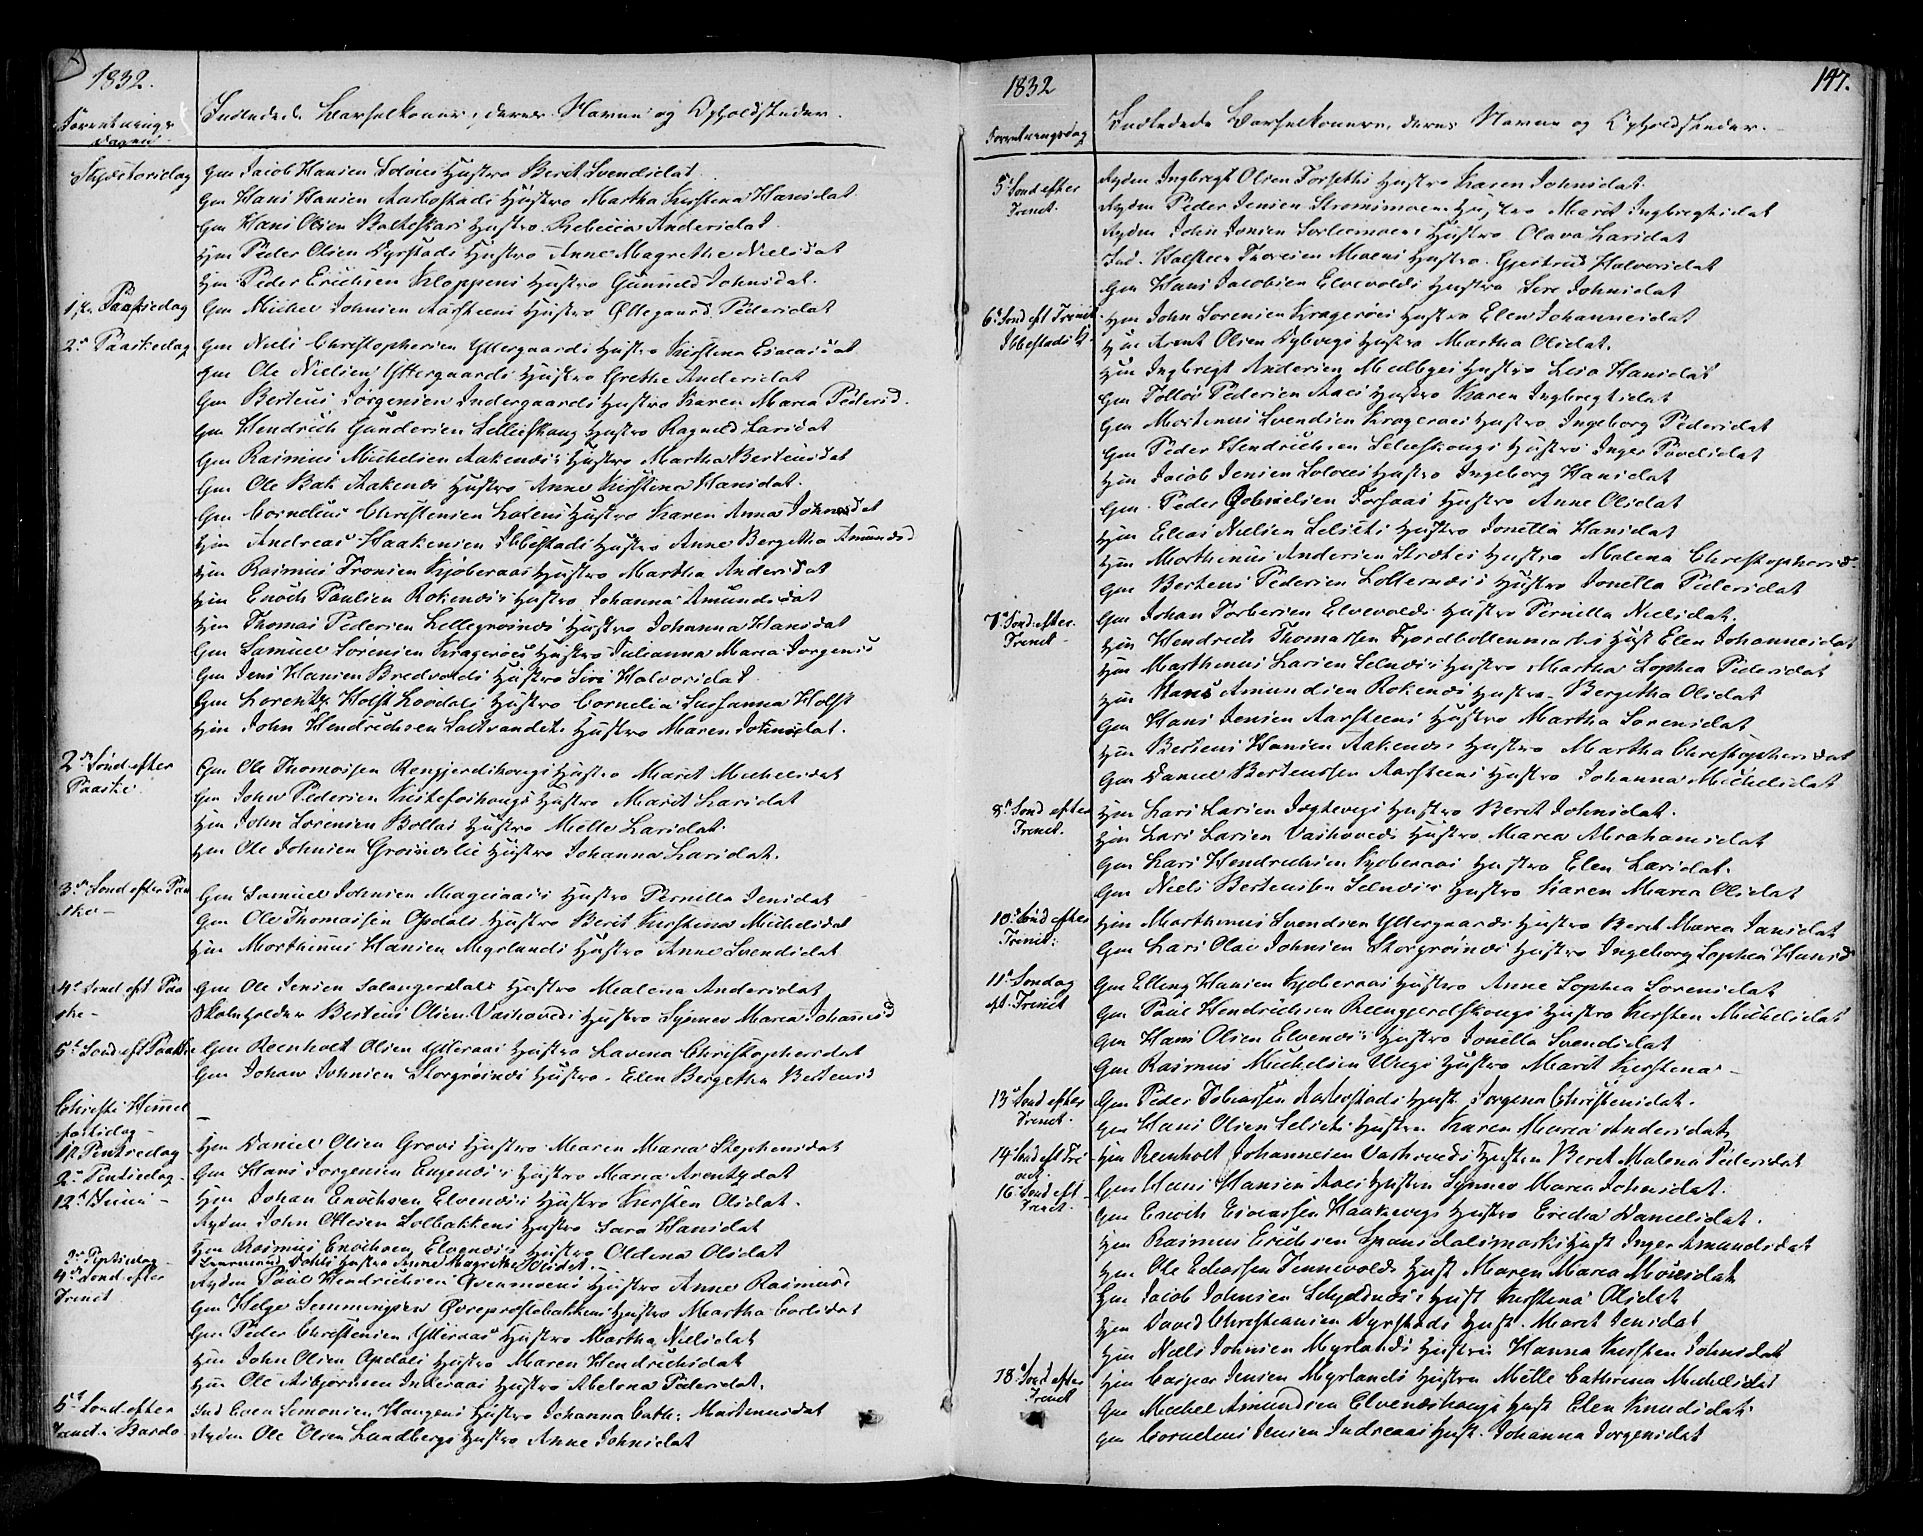 1832.
Forretnings
Dagen
Indledede Barselkoner, deres Navne og Opholdsteder.
Skjærtorsdag
Gm Jacob Hansen Soløies Hustro Berit Svendsdat.
Gm Hans Hansen Aarbostads Hustro Martha Kirstina Hansdat.
Gm Hans Olsen Balteskars Hustro Rebecca Andersdat.
Hm Peder Olsen Dyrstads Hustro Anne Magrethe Nielsdat
Hm Peder Erichsen Kloppens Hustro Gunneld Johnsdat.
1ste Paaskedag
Gm Michel Johnsen Aarsteens Hustro Øllegaard Pedersdat
2n Paaskedag
Gm Niels Christophersen Yttergaards Hustro Kirstina Esaiasdat
Gm Ole Nielsen Yttergaards Hustro Grethe Andersdat
Gm Berteus Jørgensen Indergaards Hustro Karen Maria Pedersd.
Gm Hendrich Gundersen Lilleskoug Hustro Ragneld Larsdat
Gm Rasmus Michelsen Aakenæs's Hustro Martha Berteusdat
Gm Ole Bak Aakenæs Hustro Anne Kirstina Hansdat.
Gm Cornelius Christensen Lavens Hustro Karen Anna Johnsdat
Hm Andreas Haakensen Ibbestads Hustro Anne Bergetha Amundsd
Hm Rasmus Tronsen Kjøberaas Hustro Martha Andersdat
Hm Enoch Paulsen Rokenæs's Hustro Johanna Amundsdat
Hm Thomas Pedersen Lillegrøinæs' Hustro Johanna Hansdat
Gm Samuel Sørensen Kragerøes Hustro Julianna Maria Jørgensd
Gm Jens Hansen Bredvolds Hustro Siri Halvorsdat.
Gm Lorentz Holst Løvdals Hustro Cornelia Susanna Holst
Hm John Hendrichsen Saltvandets Hustro Maren Johnsdat.
2n Sønd efter
Paaske
Gm Ole Thomassen Rengjerdskougs Hustro Marit Michelsdat
Gm John Pedersen Kistefoshougs Hustro Marit Larsdat
Hm John Sørensen Bollas Hustro Mille Larsdat.
Hm Ole Johnsen Grøsnæslie Hustro Johanna Larsdat.
3n Sønd efter Paa
ske -
Gm Samuel Johnsen Mageraas's Hustro Pernilla Jensdat
Gm Ole Thomassen Opdals Hustro Berit Kirstina Michelsdat
Hm Morthinus Hansen Myrlands Hustro Anne Svendsdat
4e Sønd eft Paa
ske -
Gm Ole Jensen Salangsdals Hustro Malena Andersdat
Skoleholder Berteus Olsen Vashoveds Hustro Synnev Maria Johansd
5e Sønd eft Paaske
Gm Reenholt Olsen Ytteraas Hustro Lavina Christophersdat
Gm Johan Johnsen Storgrøinæs Hustro. Elen Bergetha Berteusd
Christi Himmel
fartsdag -
1n Pintsedag
Hm Daniel Olsen Grovs Hustro Maren Maria Stephensdat
2n Pintsedag -
Gm Hans Jørgensen Engenæs's Hustro Maria Arentzdat
12n Junii -
Hm Johan Enochsen Elvenæs's Hustro Kirsten Olsdat.
Aydm John Ottesen Solbakkens Hustro Sara Hansdat
Hm Rasmus Enochsen Elvenæs's Hustro Oldina Olsdat
4n Sønd efter
Trinit
Aydm Paul Hendrichsen Qvernmoens Hustro Anne Rasmusd
Gm Helge Semmingsen Øvreprestebakkens Hustro Martha Carlsdat
Gm Peder Christensen Ytteraas Hustro Martha Nielsdat
Hm John Olsen Opdals Hustro Maren Hendrichsdat
Hm Ole Asbjørnsen Inderaas Hustro Abelona Pedersdat.
5t Sønd efter
Trinit i Bardo
Ind Even Simonsen Haugens Hustro Johanna Cath: Marthinusdat
Aydm Ole Olsen Lundbergs Hustro Anne Johnsdat
1832
147.
Forretningsdag
Indledede Barselkoner, deres Navne og Opholdsteder.
5e Sønd efter
Trinit.
Aydm Ingbregt Olsen Forseths Hustro Karen Johnsdat.
Aydm Peder Jensen Strømsmoens Hustro Marit Ingbregtsdat
Aydm John Jonsen Sørliemoens Hustro Olava Larsdat
Ind. Halsteen Thoresen Moens Hustro. Gjertrud Halvorsdat
Gm Hans Jacobsen Elvevolds Hustro Siri Johnsdat
6e Sønd eft Trinit
Ibbestads K.
Hm John Sørensen Kragerøes Hustro Elen Johannesdat
Hm Arent Olsen Dybvigs Hustro Martha Olsdat.
Hm Ingbregt Andersen Melbyes Hustro Lisa Hansdat
Gm Tollev Pedersen Aaes Hustro Karen Ingbregtsdat
Gm Mortinus Svendsen Kragerøes Hustro Ingeborg Pedersdat
Gm Peder Hendrichsen Lilleskougs Hustro Inger Povelsdat
Hm Jacob Jensen Soløies Hustro Ingeborg Hansdat
Gm Peder Gabrielsen Forsaas Hustro Anne Olsdat
Hm Elias Nielsen Selsets Hustro Jonella Hansdat
Hm Morthinus Andersen Strætes Hustro Malena Christophersd
Gm Berteus Pedersen Lotternæs's Hustro Jonella Pedersdat
7e Sønd. efter
Trinit -
Gm Johan Torbersen Elvevolds Hustro Pernilla Nielsdat.
Hm Hendrich Thomassen Fjordbottenmarks Hust Elen Johannesdat
Hm Marthinus Larsen Selnæs's Hustro Martha Sophia Pedersdat
Hm Hans Amundsen Rokenæs Hustro. Bergetha Olsdat
Gm Hans Jensen Aarsteens Hustro Martha Sørensdat
Hm Berteus Hansen Aakenæs Hustro Martha Christophersdat
Gm Daniel Berteussen Aarsteens Hustro Johanna Michelsdat
8e Sønd efter
Trinit.
Hm Lars Larsen Jegtevigs Hustro Berit Johnsdat.
Hm Lars Larsen Vashoveds Hustro Maria Abrahamsdat
Gm Lars Hendrichsen Kjøberaas Hustro Elen Larsdat.
Gm Niels Berteussen Selnæs's Hustro Karen Maria Olsdat
10e Sønd efter
Trinit:
Hm Marthinus Svendsen Yttergaards Hustro Berit Maria Jansdat
Gm Lars Olai Johnsen Storgrøinæs Hustro Ingeborg Sophia Hansd
11e Søndag
eft. Trinit
Gm Elling Hansen Kjøberaas Hustro Anne Sophia Sørensdat
Gm Paul Hendrichsen Reengjerdskougs Hustro Kirsten Michelsdat
Gm Hans Olsen Elvenæs's Hustro Jonella Svendsdat
Gm Rasmus Michelsen Wiigs Hustro Marit Kirstina -
13e Sønd efter
Trinit.
Gm Peder Tobiassen Aarbostads Hust. Jørgina Christensdat.
Gm Hans Olsen Selsets Hustro Karen Maria Andersdat
14e Sønd eft Tri
nit.
Hm Reinholt Johannesen Vashoveds Hustro Berit Malena Pedersdat
16e Sønd eft
Trinit.
Gm Hans Hansen Aaes Hustro Synnev Maria Johnsdat.
Gm Enoch Esaiassen Haukevigs Hustro Eredia Danielsdat.
Hm Rasmus Erichsen Spansdalsmarks Hust Inger Amundsdat
Hm Ole Eliassen Tennevolds Hust Maren Maria Monsdat
Hm Jacob Johnsen Skjeldnæs's Hust Kirstena Olsdat
Hm David Christiansen Dyrstads Hust. Marit Jensdat
Hm Niels Johnsen Myrlands Hustro Hanna Kirsten Johnsdat
18e Sønd efter
Trinit
Hm Caspar Jensen Myrlands Hustro Mille Cathrina Michelsdat
Gm Michel Amundsen Elvenæshougs Hust Elen Knudsdat
Gm Cornelius Jensen Indreaas Hust. Johanna Jørgensdat